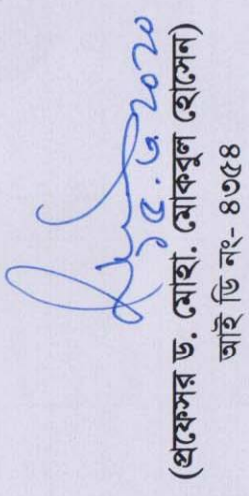 ১৫.৬.২০২০
(প্রফেসর ড. মোহা. মোকবুল হোসেন)
আই ডি নং- ৪৩৫৪